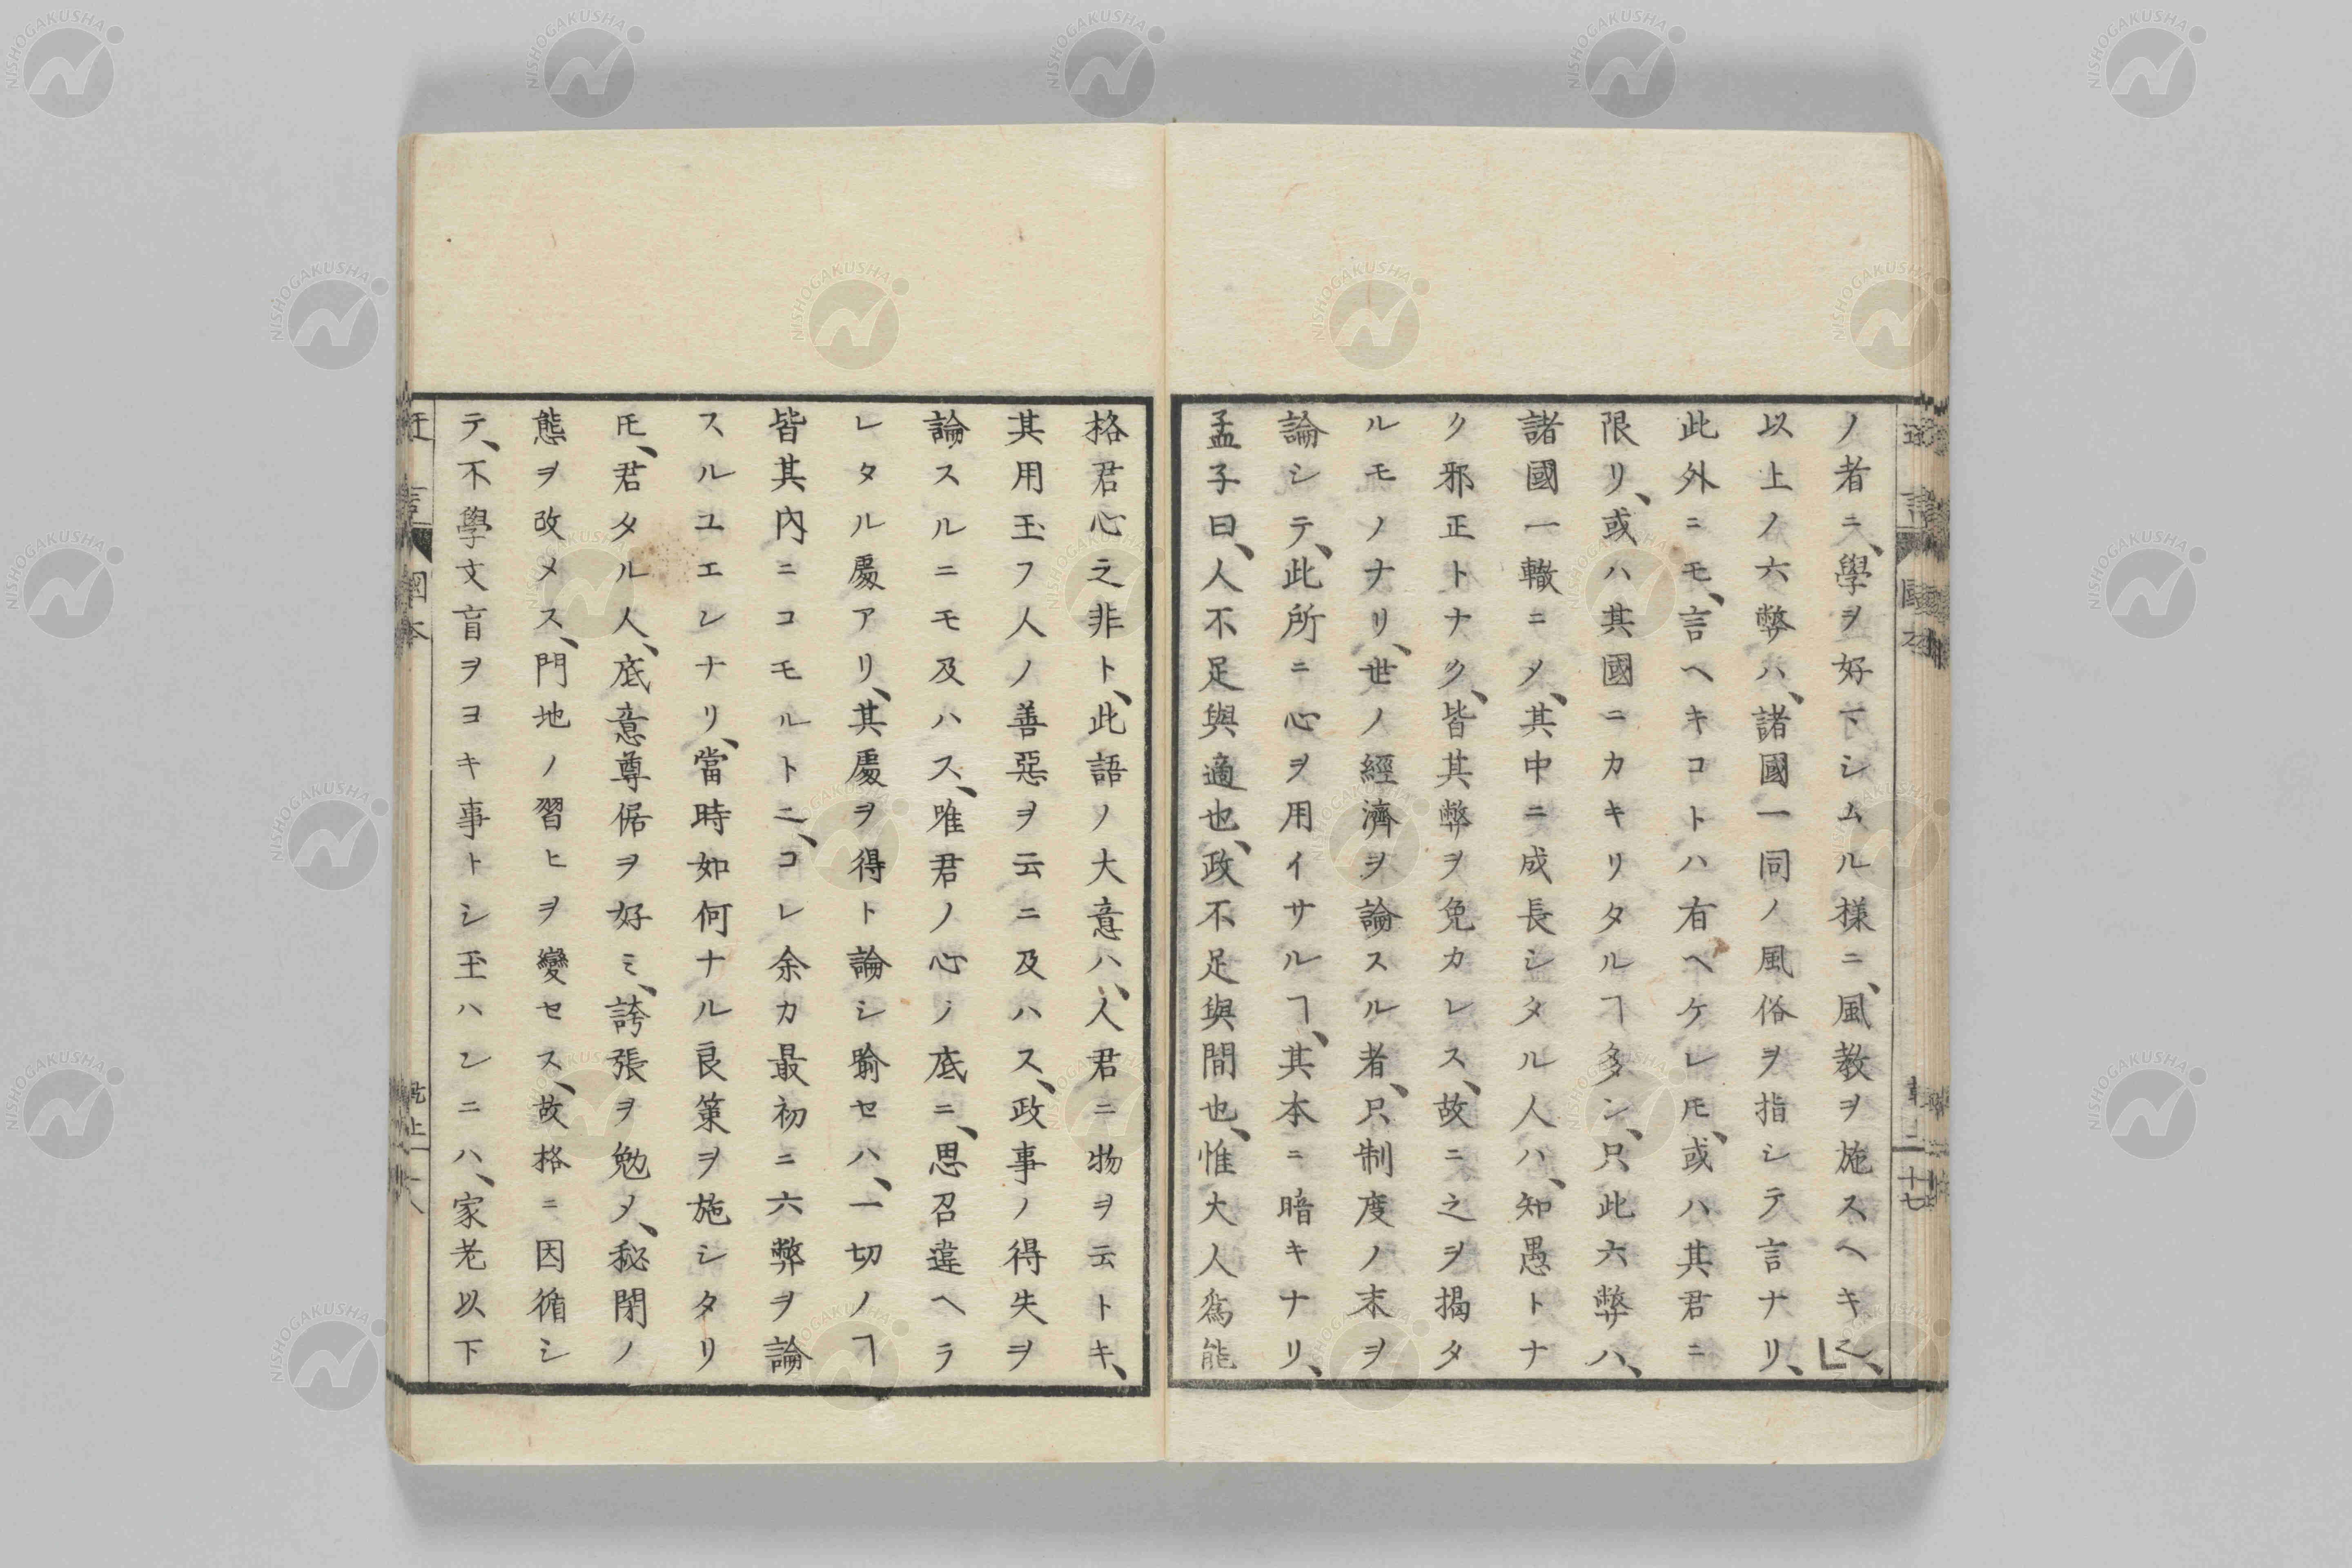 ノ者ニ、學ヲ好マシムル様ニ、風教ヲ施スヘキ
以上ノ六弊ハ、諸國一同ノ風俗ヲ指シテ言ナリ、
此外ニモ、言ヘキコトハ有ヘケレ𪜈、或ハ其君ニ
限リ、或ハ其國ニカキリタルヿ多シ、只此六弊ハ、
諸國一轍ニ〆、其中ニ成長シタル人ハ、知愚トナ
ク邪正トナク、皆其弊ヲ免カレス、故ニ之ヲ揭タ
ルモノナリ、世ノ經濟ヲ論スル者、只制度ノ末ヲ
論シテ、此所ニ心ヲ用イサルヿ、其本ニ暗キナリ、
孟子曰、人不足與適也、政不足與間也、惟大人爲能
格君心之非ト、此語ノ大意ハ、人君ニ物ヲ云トキ、
其用玉フ人ノ善惡ヲ云ニ及ハス、政事ノ得失ヲ
論スルニモ及ハス、唯君ノ心ノ底ニ、思召違ヘラ
レタル處アリ、其處ヲ得ト論シ喩セハ、一切ノヿ
皆其內ニコモルトニ、コレ余カ最初ニ六弊ヲ論
スルユエンナリ、當時如何ナル良策ヲ施シタリ
𪜈、君タル人、底意尊倨ヲ好ミ、誇張ヲ勉メ、秘閉ノ
態ヲ改メス、門地ノ習ヒヲ變セス、故格ニ因循シ
テ、不學文盲ヲヨキ事トシ玉ハンニハ、家老以下
迂言
國本
NISHOGAKUSHA